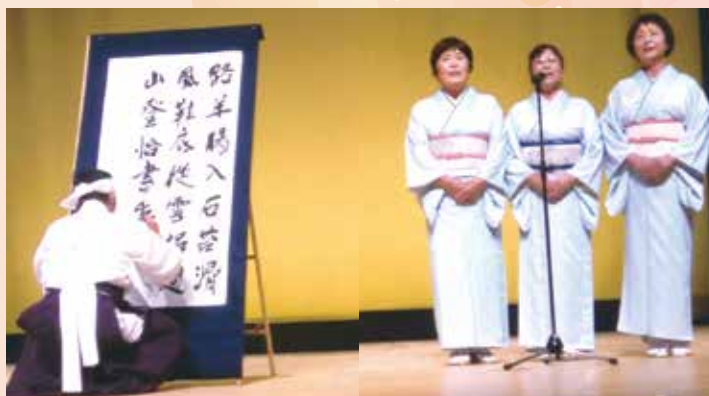 路羊腸入石苔滑
風鞋底從雲掃廻
山登恰書生